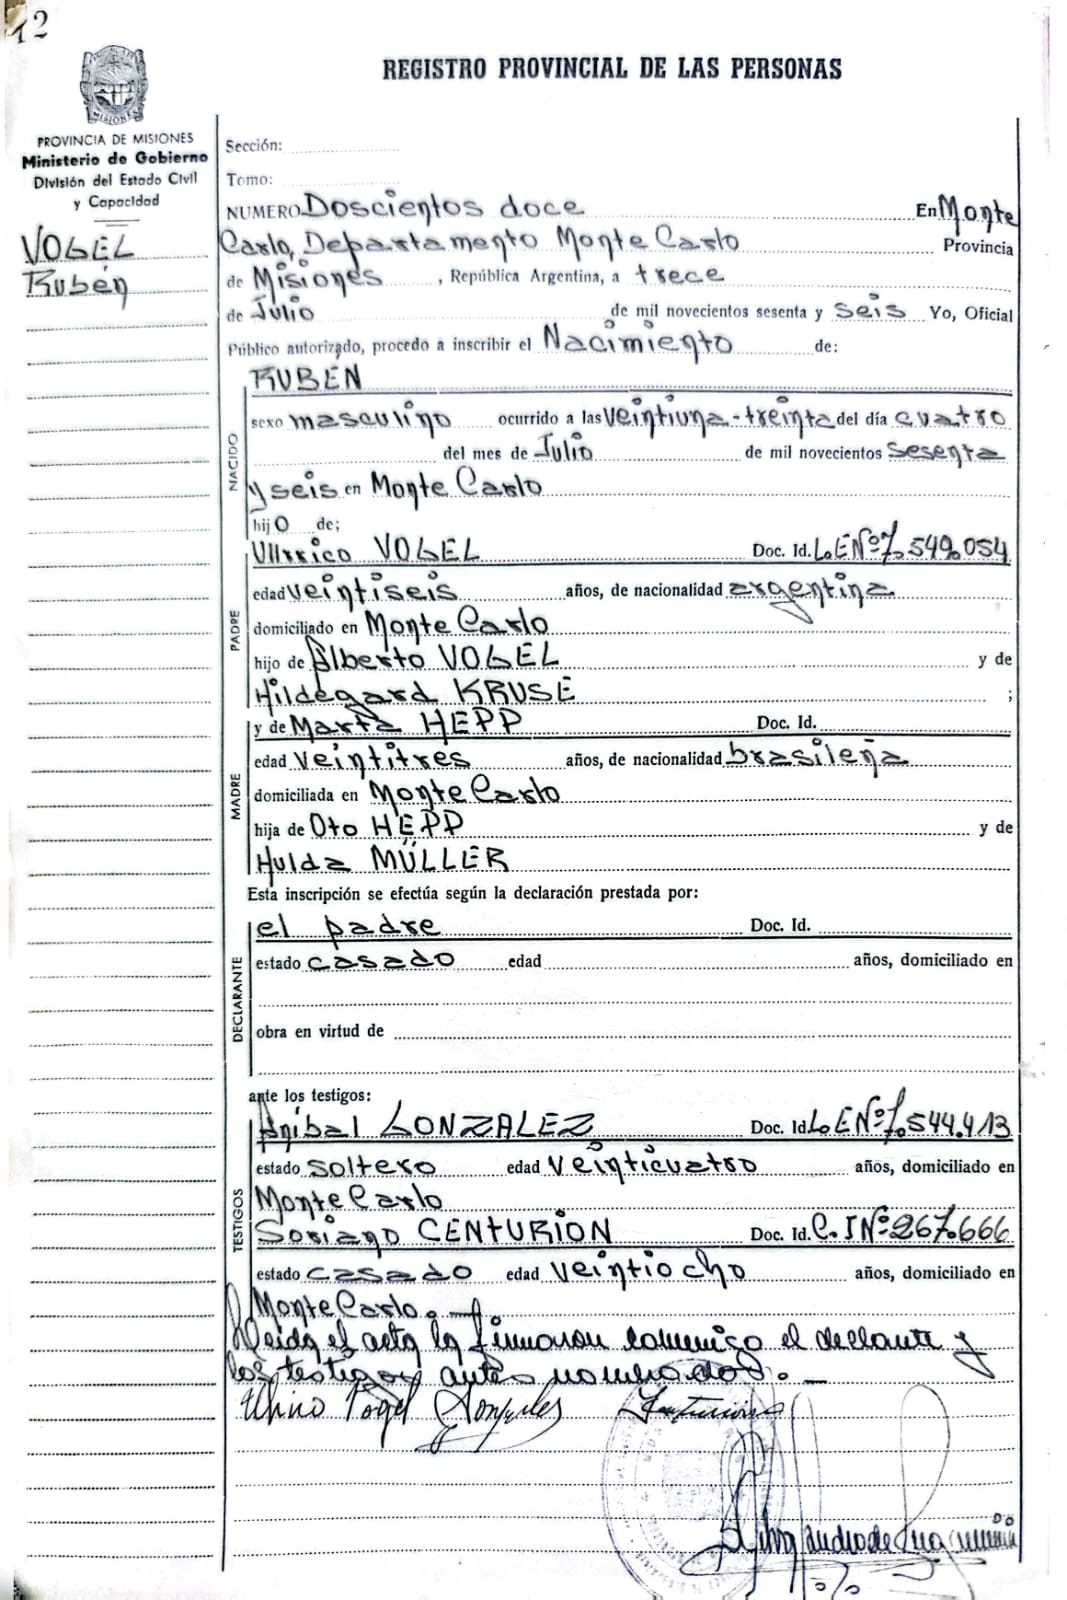 12
REGISTRO PROVINCIAL DE LAS PERSONAS
MISIONES
PROVINCIA DE MISIONES
Ministerio de Gobierno
División del Estado Civil
y Capacidad
VOGEL
Rubén
Sección:
Tomo:
NUMERO Doscientos doce En Monte
Carlo, Departamento Monte Carlo Provincia
de Misiones, República Argentina, a trece
de Julio de mil novecientos sesenta y seis Yo, Oficial
Público autorizado, procedo a inscribir el Nacimiento de:
NACIDO
RUBEN
sexo masculino ocurrido a las veintiuna-treinta del día cuatro
del mes de Julio de mil novecientos sesenta
y seis en Monte Carlo
hijo de;
PADRE
Ullrrico VOGEL Doc. Id. L.E Nº 7.549.054
edad veintiseis años, de nacionalidad argentina
domiciliado en Monte Carlo
hijo de Alberto VOGEL y de
Hildegard KRUSE ;
MADRE
y de Marta HEPP Doc. Id.
edad veintitres años, de nacionalidad brasileña
domiciliada en Monte Carlo
hija de Oto HEPP y de
Hulda MÜLLER
Esta inscripción se efectúa según la declaración prestada por:
DECLARANTE
el padre Doc. Id.
estado casado edad años, domiciliado en
obra en virtud de
ante los testigos:
TESTIGOS
Anibal GONZALEZ Doc. Id. L.E Nº 7.544.413
estado soltero edad veinticuatro años, domiciliado en
Monte Carlo
Soriano CENTURION Doc. Id. C.I Nº 267.666
estado casado edad veintiocho años, domiciliado en
Monte Carlo.-
Leida el acta la firmaron comnigo el declante y
los testigos antes nombrados.-
Vogel Gonzales